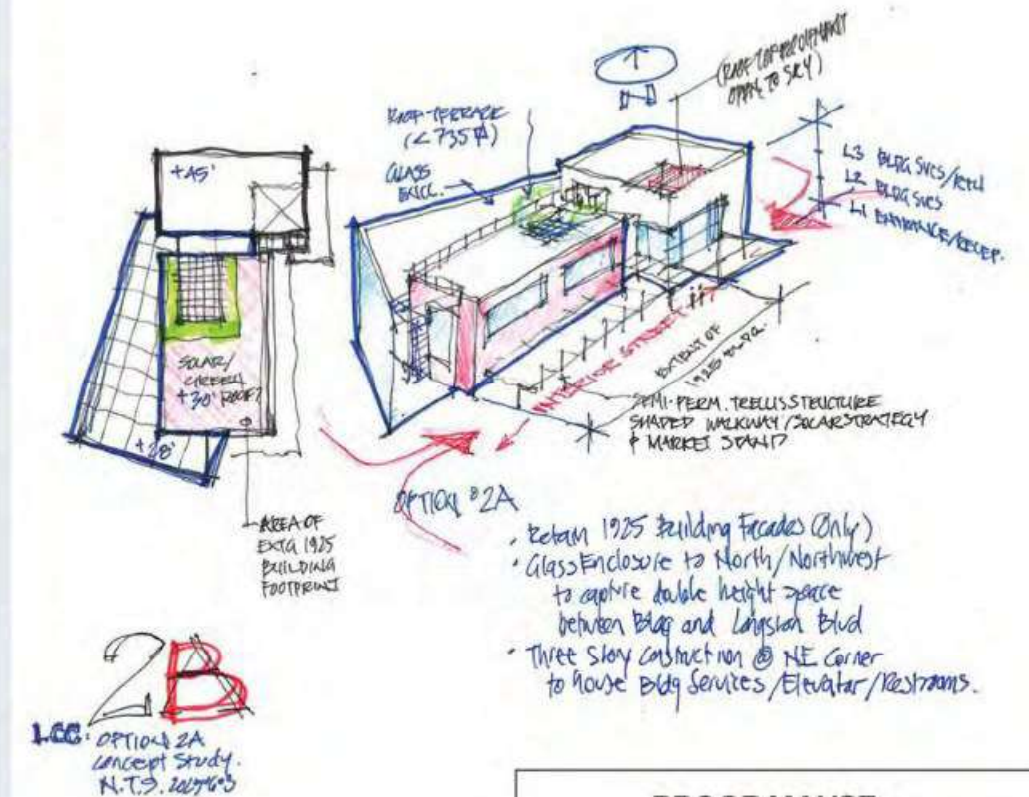 (ROOF TOP EQUIPMENT
OPEN TO SKY)
ROOF-TERRACE
(< 735 ⌀)
GLASS
ENCL.
L3 BLDG SVCS/
L2 BLDG SVCS
L1 ENTRANCE/RECEP.
+45'
SOLAR/
GREEN
+30' ROOF
+28'
INTERIOR STREET
EXTENT OF
1925 BLDG.
SEMI-PERM. TRELLIS STRUCTURE
SHADED WALKWAY/SOLAR STRATEGY
& MARKET STAND
AREA OF
EXTG 1925
BUILDING
FOOTPRINT
OPTION 2A
· Retain 1925 Building Facades (Only)
· Glass Enclosure to North/Northwest
to capture double height space
between Bldg and Langston Blvd
· Three Story Construction @ NE Corner
to house Bldg Services/Elevator/Restrooms.
2B
LCC: OPTION 2A
Concept Study.
N.T.S.